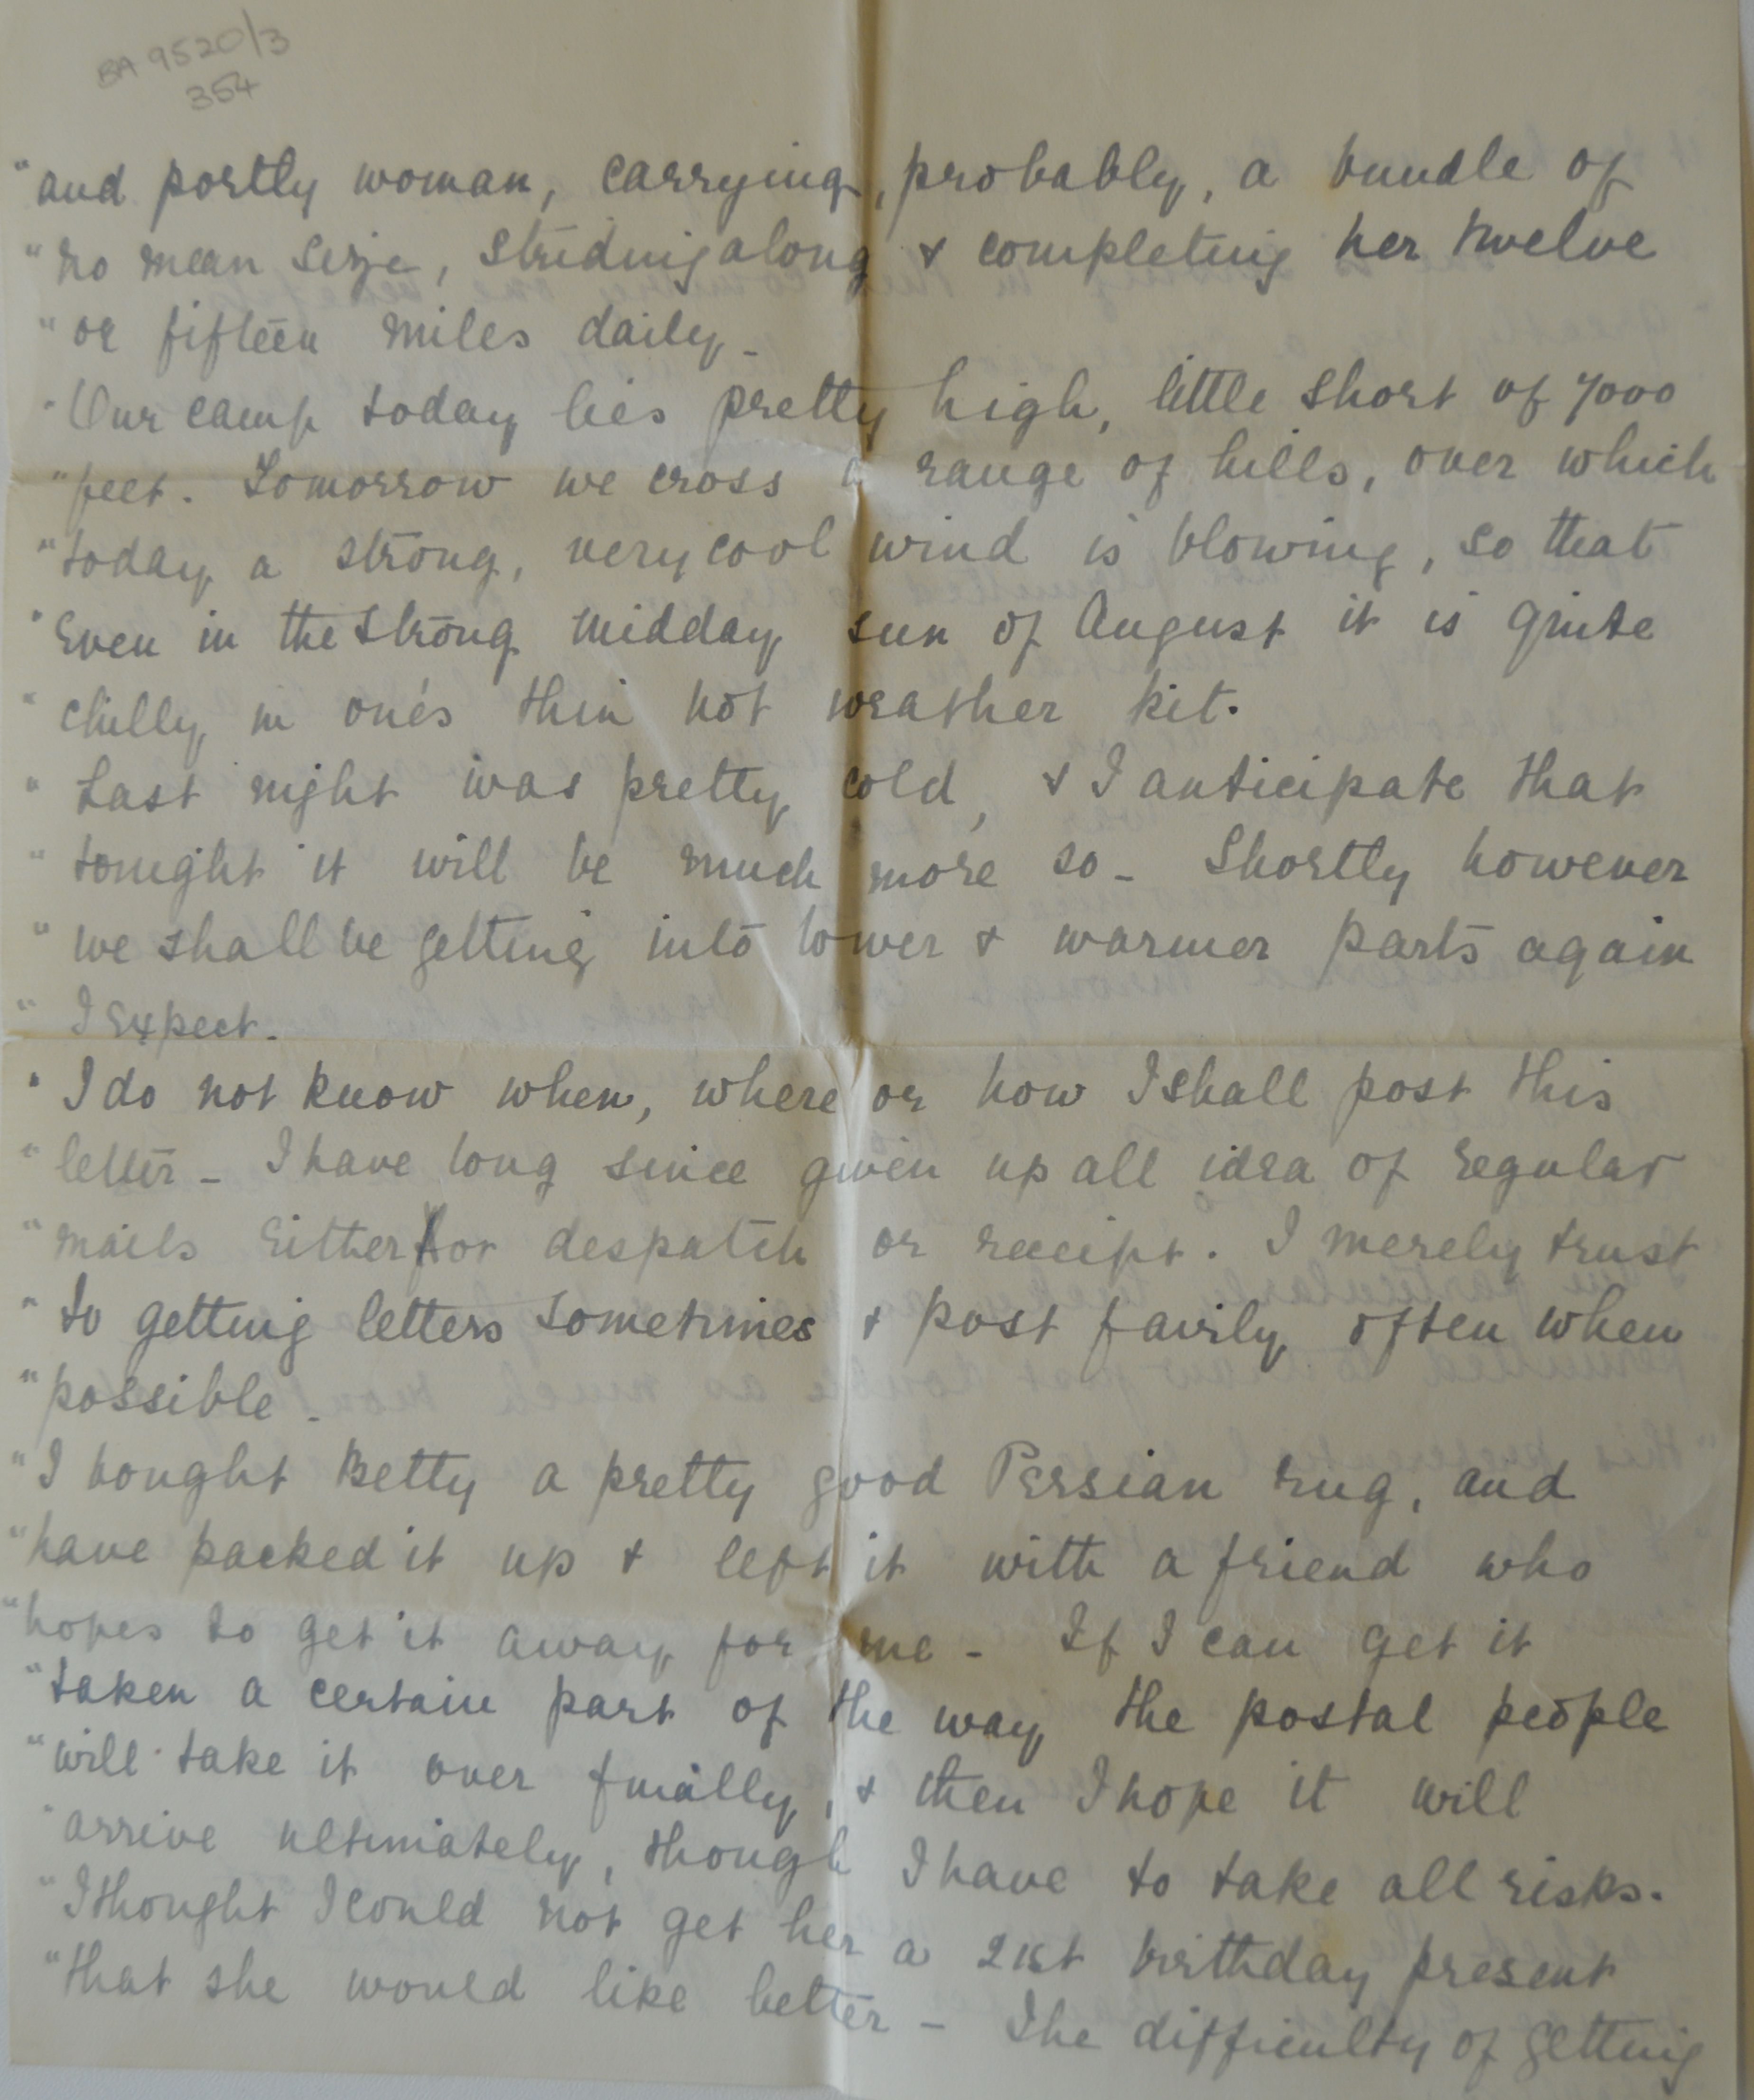 BA 9520/3
354
"and portly woman, carrying, probably, a bundle of
"no mean size, striding along & completing her twelve
"or fifteen miles daily_
"Our camp today lies pretty high, little short of 7000
"feet. Tomorrow we cross a range of hills, over which
"today a strong, very cool wind is blowing, so that
"even in the strong midday sun of August it is quite
"chilly in one's thin hot weather kit.
"Last night was pretty cold, & I anticipate that
"tonight it will be much more so_ Shortly however
"we shall be getting into lower & warmer parts again
"I expect.
"I do not know when, where or how I shall post this
"letter_ I have long since given up all idea of regular
"mails either for despatch or receipt. I merely trust
"to getting letters sometimes & post fairly often when
"possible_
"I bought Betty a pretty good Persian rug, and
"have packed it up & left it with a friend who
"hopes to get it away for me_ If I can get it
"taken a certain part of the way the postal people
"will take it over finally, & then I hope it will
"arrive ultimately, though I have to take all risks.
"I thought I could not get her a 21st birthday present
"that she would like better_ The difficulty of getting